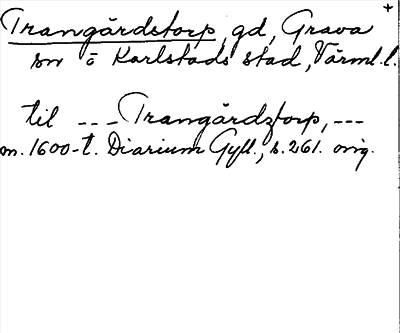 Trangårdstorp, gd, Grava +
sn o Karlstads stad, Värml. l.
till --- Trangårdztorp, ---
m. 1600-t. Diarium Gyll., s. 261. orig.